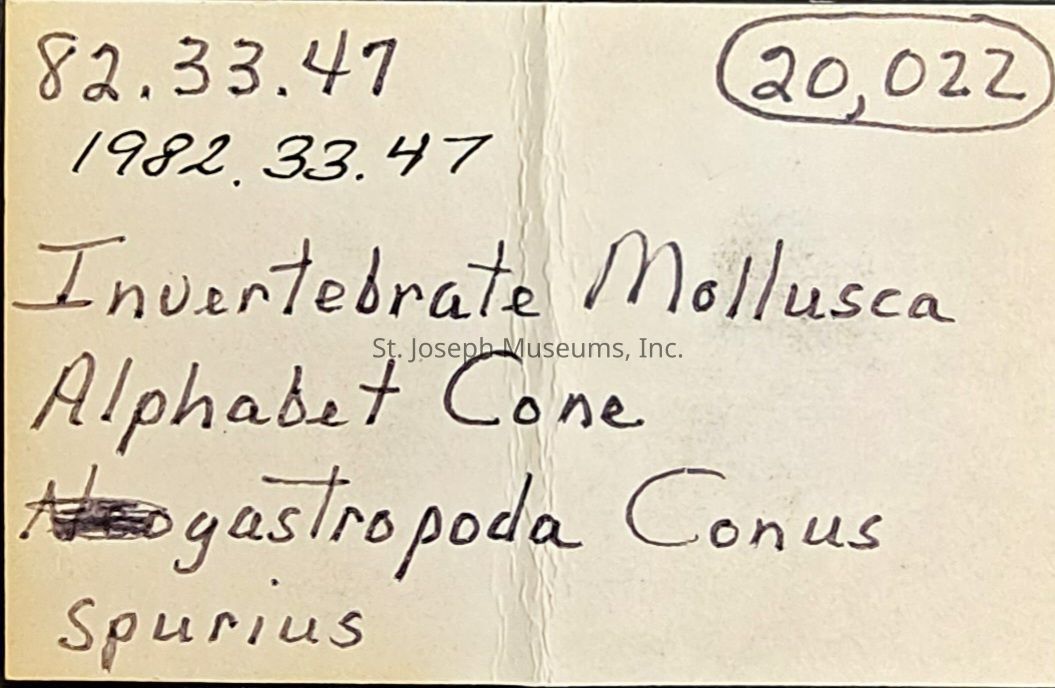 82.33.47
20,022
1982.33.47
Invertebrate Mollusca
St. Joseph Museums, Inc.
Alphabet Cone
gastropoda Conus
spurius